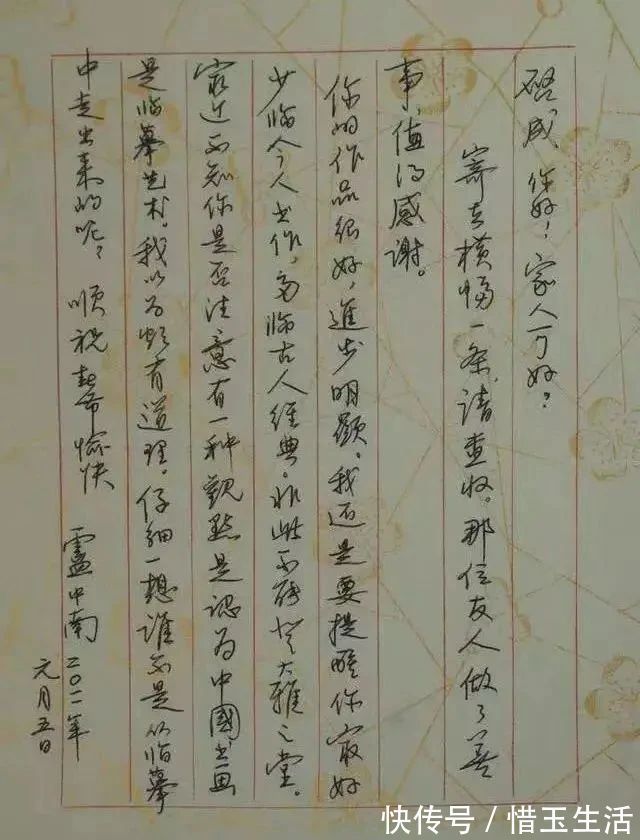 啟成 你好！家人可好？
寄去横幅一条，请查收。那位友人做了善
事，值得感谢。
你的作品很好，進步明顯。我还是要提醒你最好
少临今人书作，多临古人经典。非此不能登大雅之堂。
最近不知你是否注意有一种觀點是认为中國书画
是临摹艺术。我以为颇有道理。仔细一想谁不是从临摹
中走出来的呢？ 顺祝 愉快
盧中南 二〇一一年
元月五日
快传号 / 惜玉生活